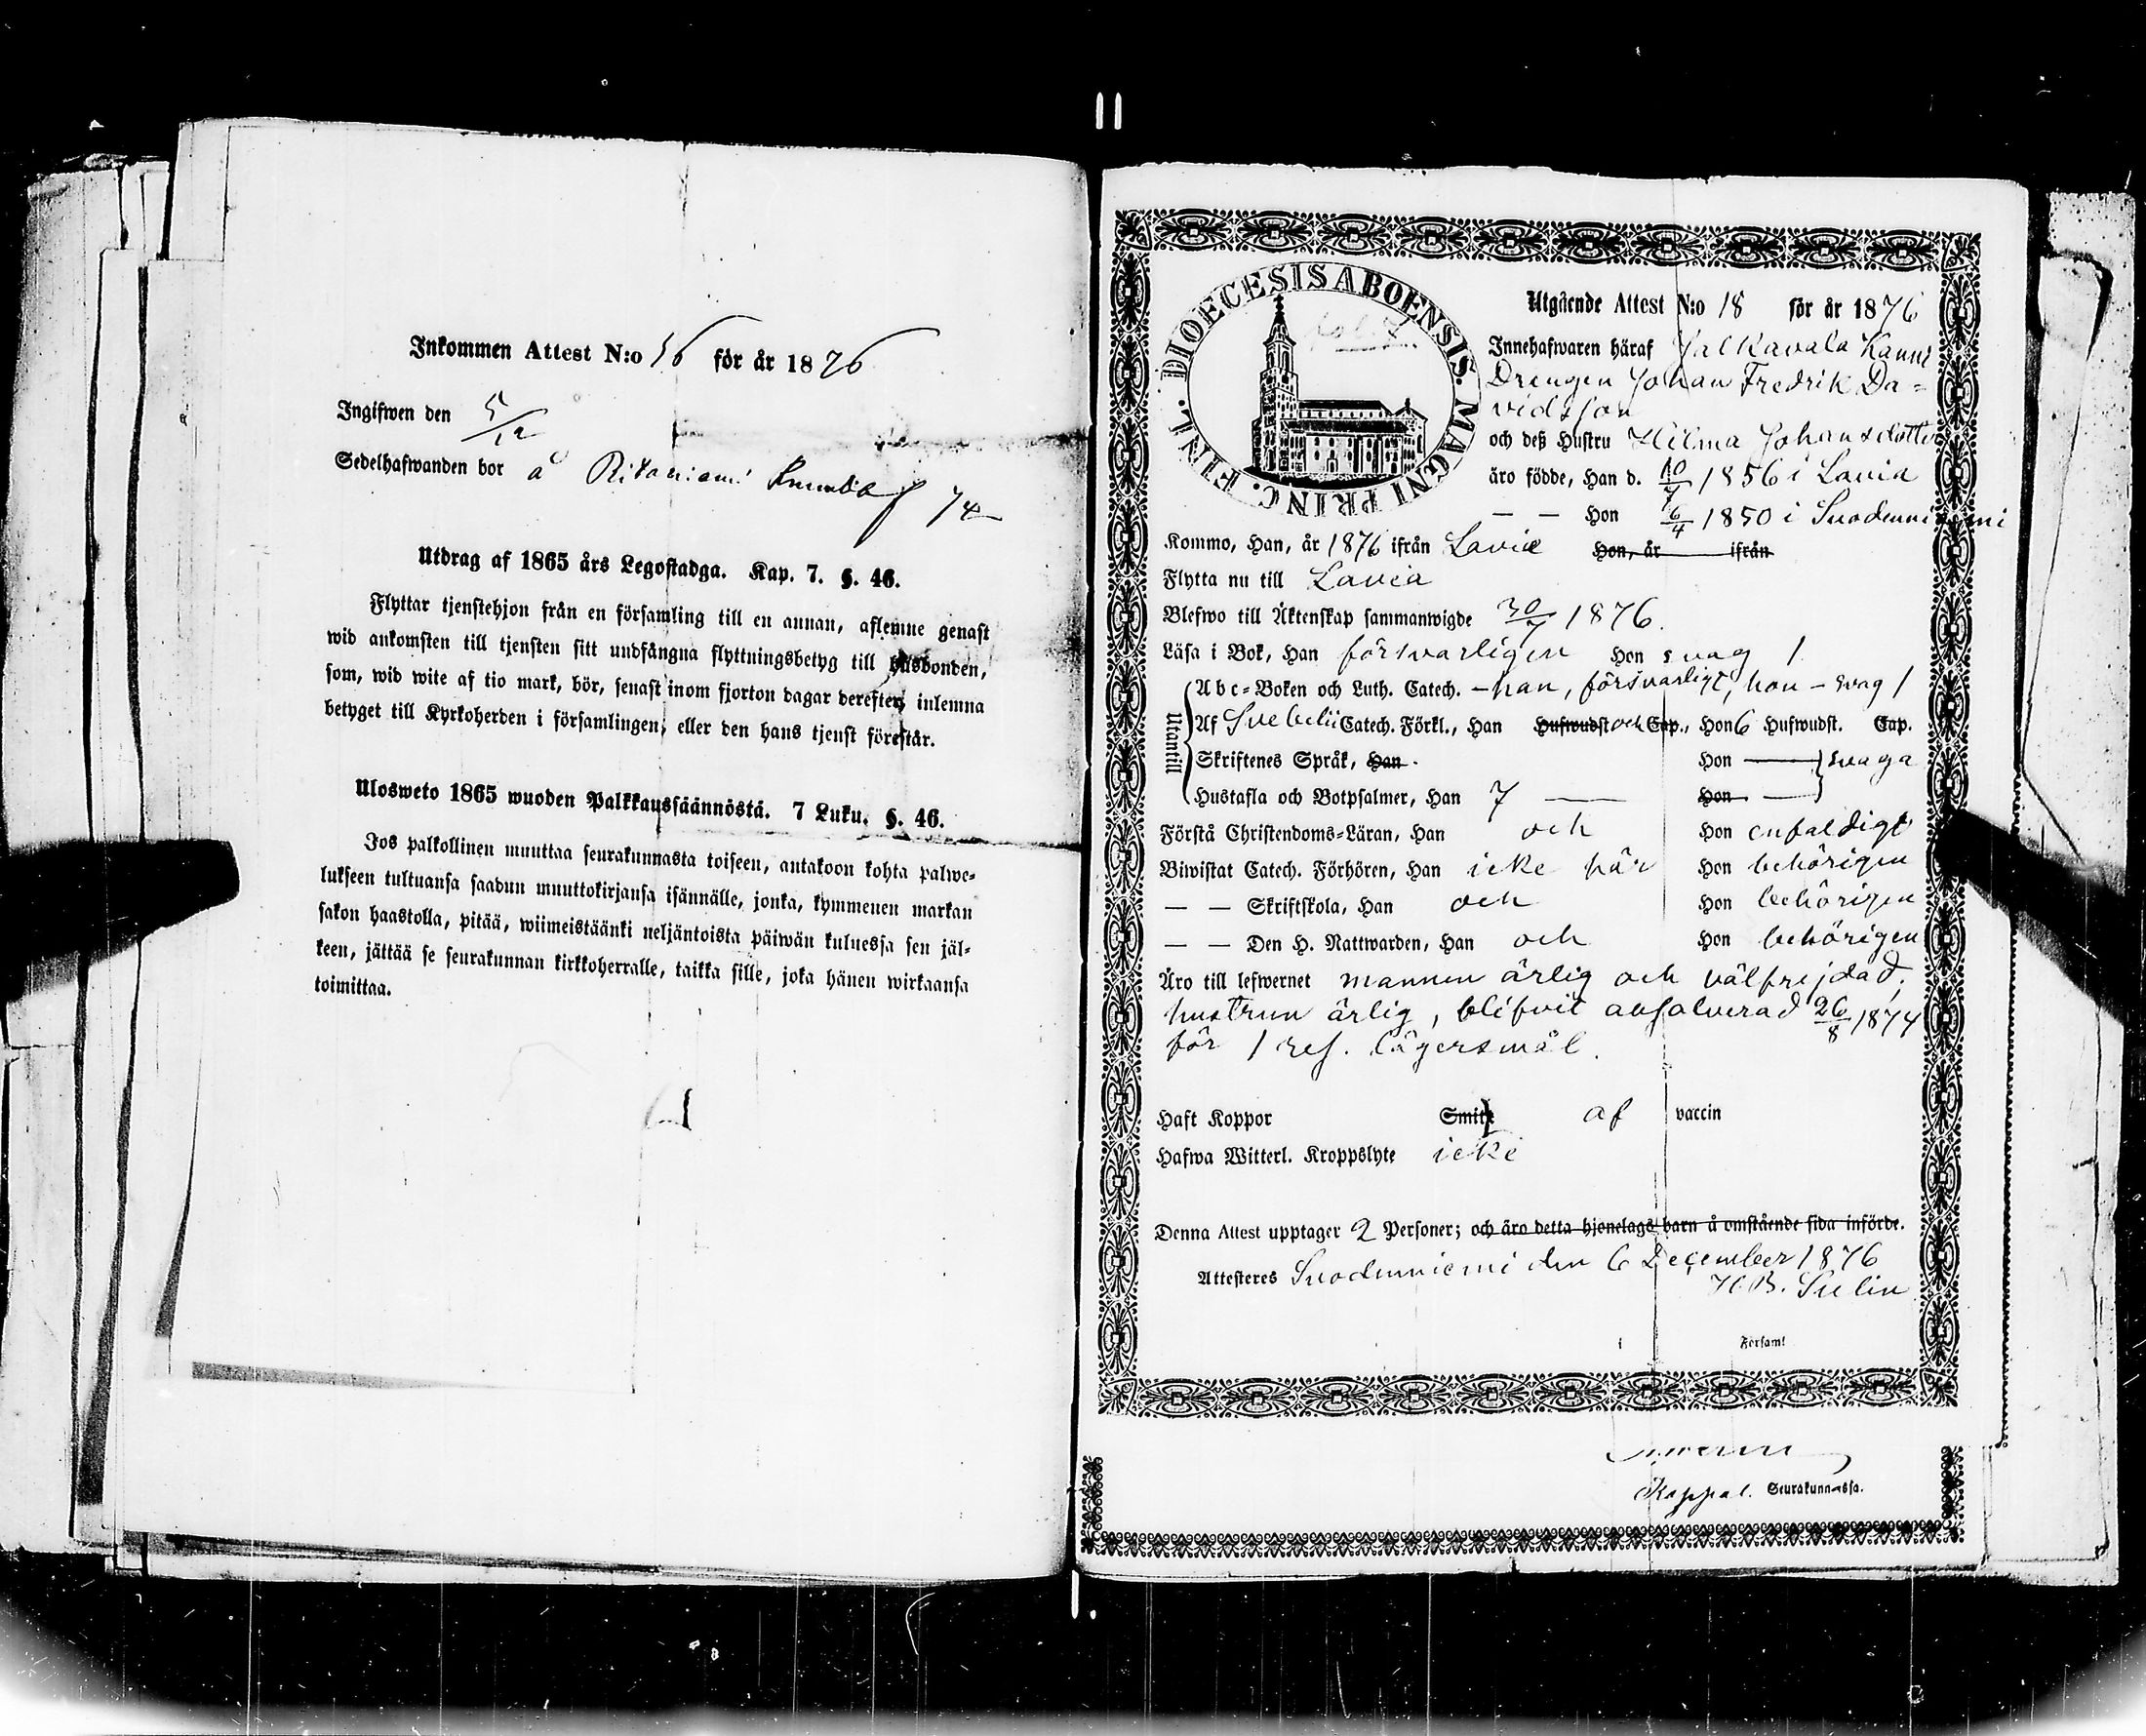 Inkommen Attest N:o 56 för år 1876
Ingifwen den 5/12
Sedelhafwanden bor å Ritaniemi 74
Utdrag af 1865 års Legostadga. Kap. 7. §. 46.
Flyttar tjenstehjon från en församling till en annan, aflemne genast
wid ankomsten till tjensten sitt undfångna flyttningsbetyg till husbonden,
som, wid wite af tio mark, bör, senast inom fjorton dagar derefter, inlemna
betyget till Kyrkoherden i församlingen, eller den hans tjenst förestår.
Ulosweto 1865 wuoden Palkkaussäännöstä. 7 Luku. §. 46.
Jos palkollinen muuttaa seurakunnasta toiseen, antakoon kohta palwe-
lukseen tultuansa saadun muuttokirjansa isännälle, jonka, kymmenen markan
sakon haastolla, pitää, wiimeistäänki neljäntoista päiwän kuluessa sen jäl-
keen, jättää se seurakunnan kirkkoherralle, taikka sille, joka hänen wirkaansa
toimittaa.
DIOECESIS ABOENSIS. MAGNI PRINC. FINL.
Utgående Attest N:o 18 för år 1876
Innehafwaren häraf Jalkavala Kanni
Drengen Johan Fredrik Da-
vidsson
och deß Hustru Hilma Johansdotter
äro födde, Han d. 10/7 1856 i Lavia
— — Hon 6/4 1850 i Suodenniemi
Kommo, Han, år 1876 ifrån Lavia Hon, år ifrån
Flytta nu till Lavia
Blefwo till Äktenskap sammanwigde 30/7 1876.
Läsa i Bok, Han försvarligen Hon svag /
Utantill
Abc-Boken och Luth. Catech. – han, försvarligt, hon – svag /
Af Svebelii Catech. Förkl., Han Hufwudst och Cap., Hon 6 Hufwudst. Cap.
Skriftenes Språk, Han Hon — svaga
Hustafla och Botpsalmer, Han 7 — Hon —
Förstå Christendoms-Läran, Han och Hon enfaldigt
Biwistat Catech. Förhören, Han icke här Hon behörigen
— — Skriftskola, Han och Hon behörigen
— — Den H. Nattwarden, Han och Hon behörigen
Äro till lefwernet mannen ärlig och välfrejdad,
hustrun ärlig, blifvit absolverad 26/8 1874
för 1 res. lägersmål.
Haft Koppor Smitt af vaccin
Hafwa Witterl. Kroppslyte icke
Denna Attest upptager 2 Personer; och äro detta hjonelags barn å omstående sida införde.
Attesteres Suodenniemi den 6 December 1876
H.B. Selin
i Församl
Kappal. Seurakunnassa.